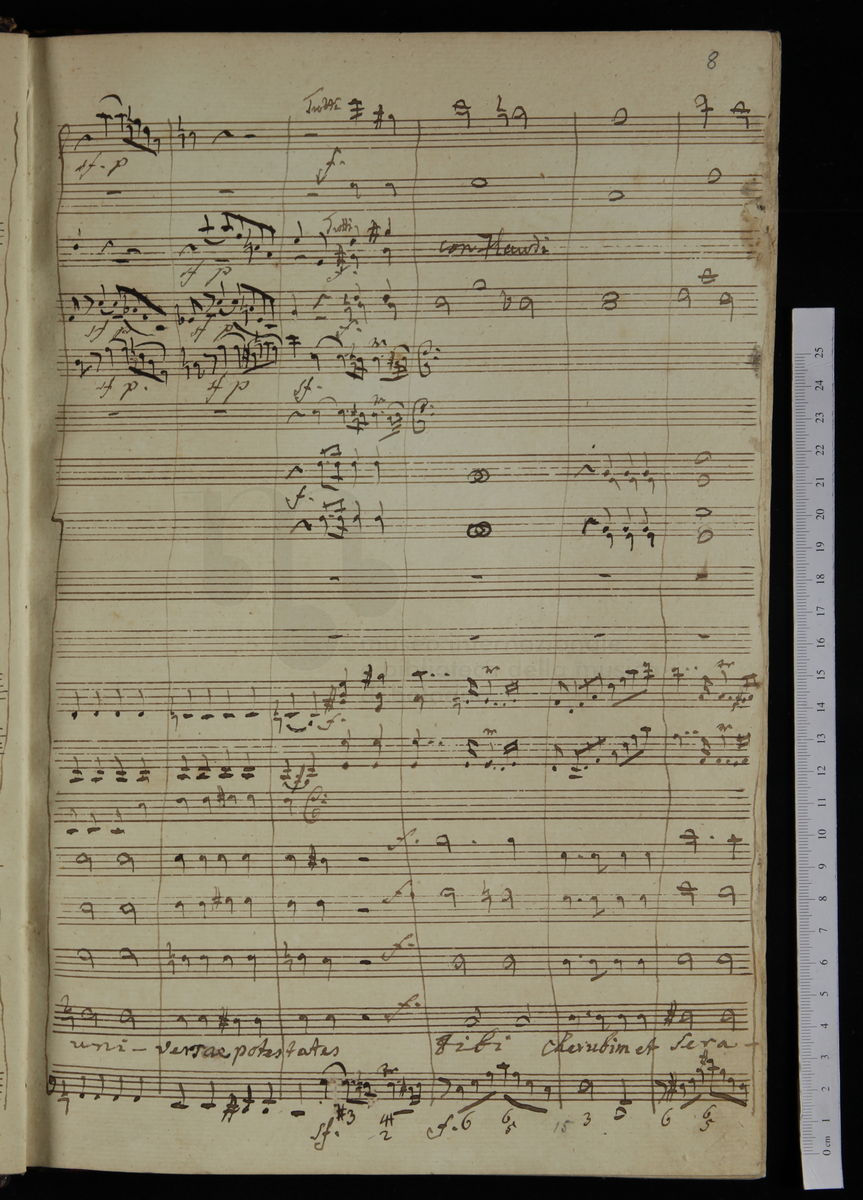 8
Tutti
sf. p
f.
Tutti
sf p
f.
sf p
sf p
f.
sf p.
sf p
sf.
f.
f.
f.
f.
f.
f.
uni- versae potestates Tibi Cherubim et Sera-
#3 4# 6 6 15 3 6 6
2 5 5
sf. f.
25
24
23
22
21
20
19
18
17
16
15
14
13
12
11
10
9
8
7
6
5
4
3
2
1
0 cm